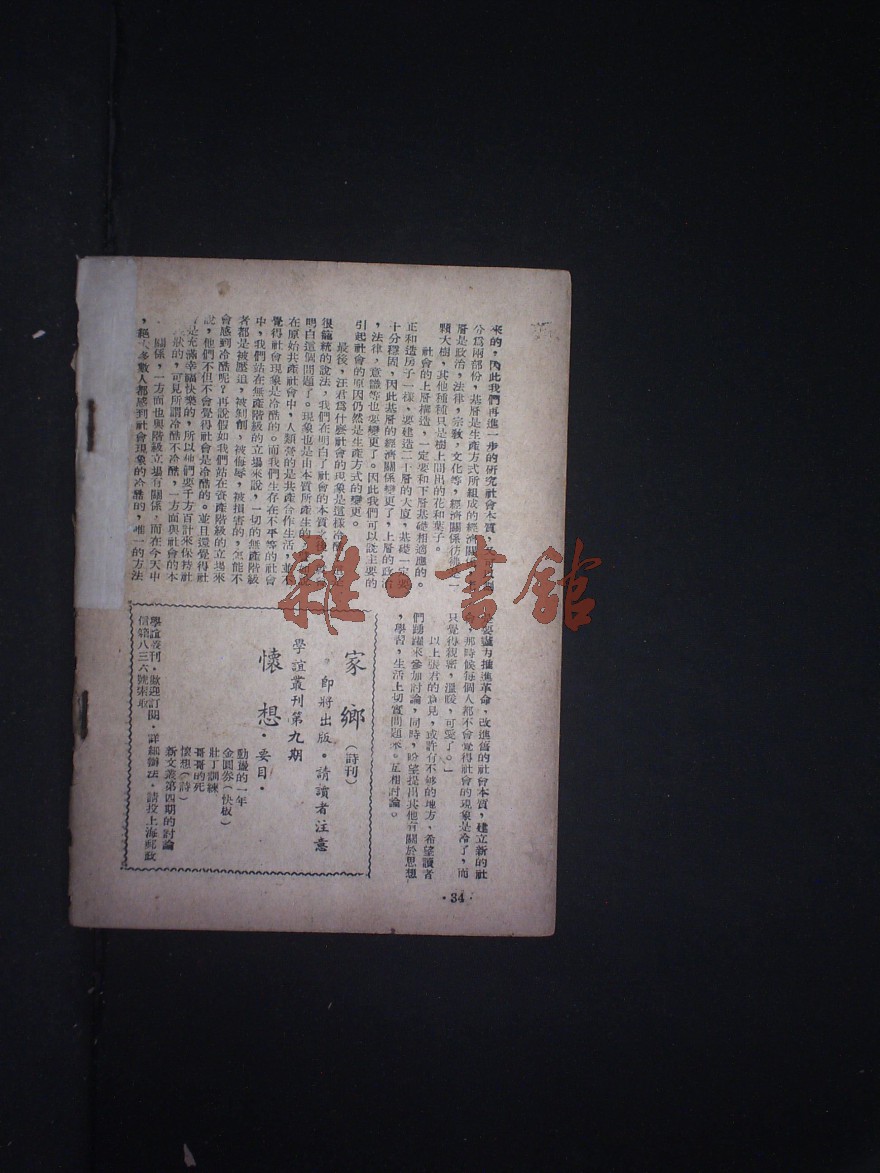 來的，因此我們再進一步的研究社會本質，
分為兩部份，基層是生產方式所組成的經濟關
層是政治，法律，宗敎，文化等，經濟關係彷彿是一
顆大樹，其他種種只是樹上開出的花和葉子。
社會的上層構造，一定要和下層基礎相適應的。
正和造房子一樣，要建造二十層的大廈，基礎一定要
十分穩固，因此基層的經濟關係變更了，上層的政治
，法律，意識等也要變更了。因此我們可以說主要的
引起社會的原因仍然是生產方式的變更。
最後，汪君為什麼社會的現象是這樣冷酷
很籠統的說法，我們在明白了社會的本質之後
明白這個問題了。現象也是由本質所產生的
在原始共產社會中，人類營的是共產合作生活，並不
覺得社會現象是冷酷的。而我們生存在不平等的社會
中，我們站在無產階級的立場來說，一切的無產階級
者都是被壓迫，被剝削，被侮辱，被損害的，怎能不
會感到冷酷呢？再說假如我們站在資產階級的立場來
說，他們不但不會覺得社會是冷酷的。並且還覺得社
是充滿幸福快樂的，所以他們要千方百計來保持社
狀的，可見所謂冷酷不冷酷，一方面與社會的本
關係，一方面也與階級立場有關係。而在今天中
，絕大多數人都感到社會現象的冷酷的，唯一的方法
是要盡力推進革命，改進舊的社會本質，建立新的社
，那時候每個人都不會覺得社會的現象是冷了，而
只覺得親密，溫暖，可愛了。」
以上張君的意見，或許有不够的地方，希望讀者
們踴躍來參加討論，同時，盼望提出其他有關於思想
，學習，生活上切實問題來。互相討論。
家鄉（詩刊）
。即將出版。請讀者注意
學誼叢刊第九期
懷想・要目・
動盪的一年
金圓券（快板）
壯丁訓練
哥哥的死
懷想（詩）
新文叢第四期的討論
學誼叢刊，歡迎訂閱，詳細辦法，請投上海郵政
信箱八三六號索取
・34・
雜・書館